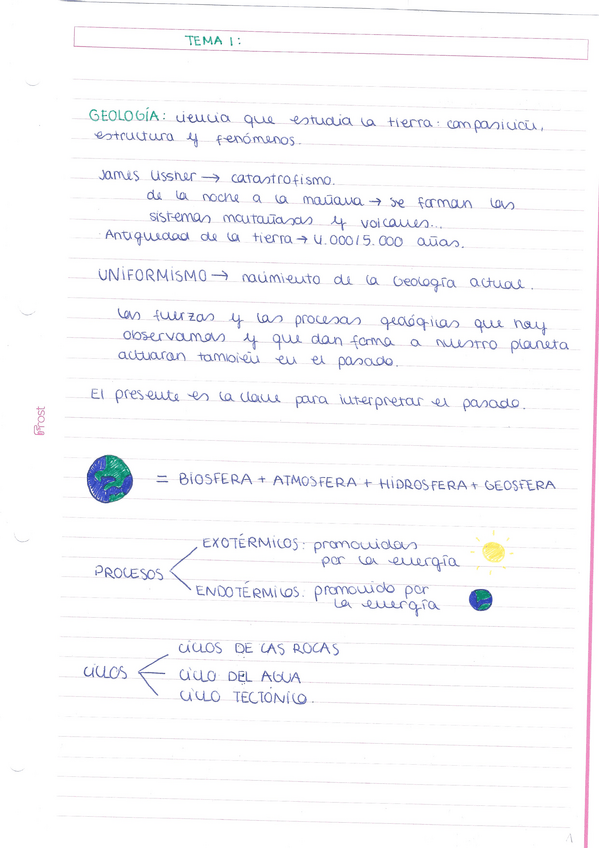 TEMA 1:
GEOLOGÍA: ciencia que estudia la tierra: composición,
estructura y fenómenos.
James Ussher → catastrofismo.
de la noche a la mañana → se forman los
sistemas montañosos y volcanes...
Antiguedad de la tierra → 4.000/5.000 años.
UNIFORMISMO → nacimiento de la Geología actual.
Las fuerzas y los procesos geológicos que hoy
observamos y que dan forma a nuestro planeta
actuaron también en el pasado.
El presente es la clave para interpretar el pasado.
= BIOSFERA + ATMOSFERA + HIDROSFERA + GEOSFERA
PROCESOS
EXOTÉRMICOS: promovidos
por la energía
ENDOTÉRMICOS: promovido por
la energía
CICLOS
CICLOS DE LAS ROCAS
CICLO DEL AGUA
CICLO TECTÓNICO.
Prost
1